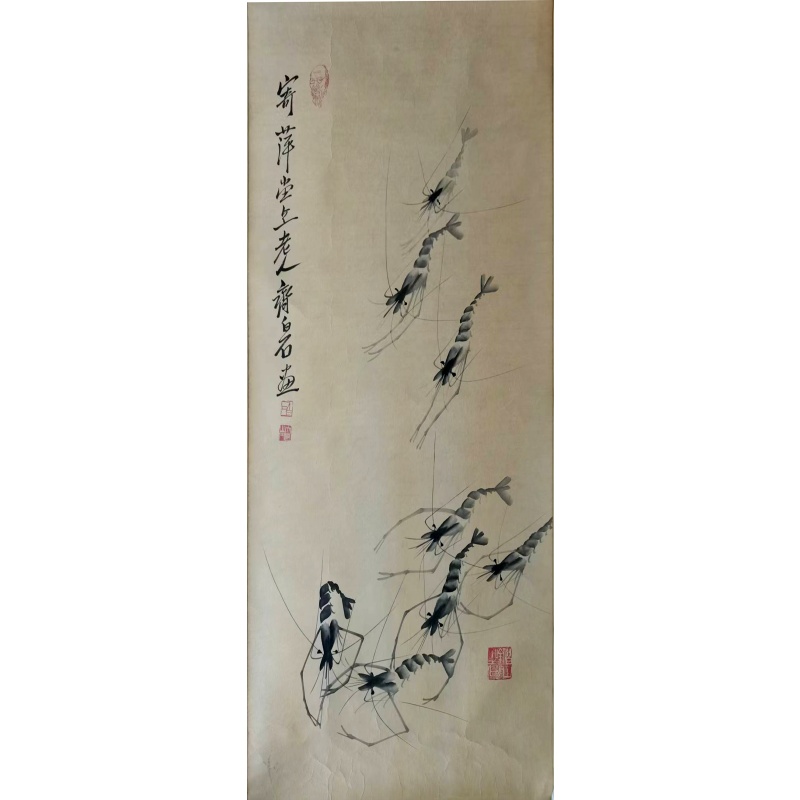 寄萍堂上老人齊白石画